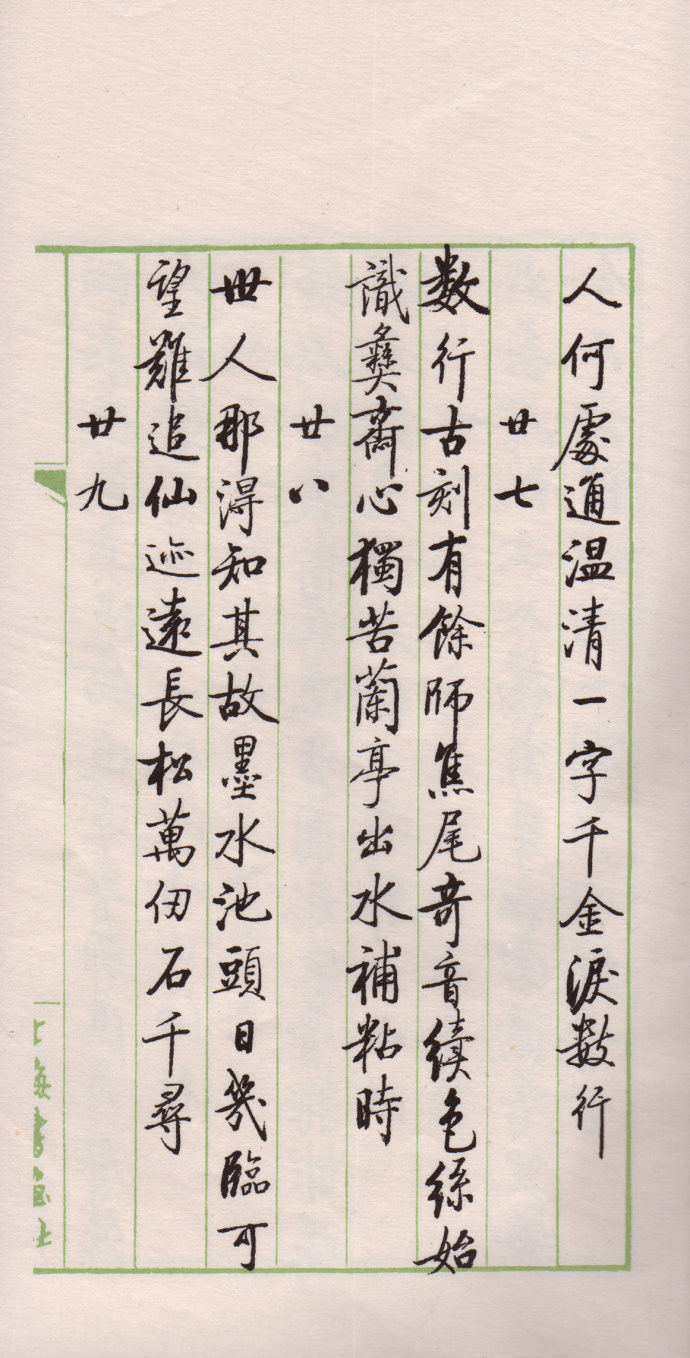 人何處通温清一字千金淚数行
廿七
数行古刻有餘師焦尾奇音續色絲始
識彝齋心獨苦蘭亭出水補粘時
廿八
世人那得知其故墨水池頭日幾臨可
望難追仙迹遠長松萬仞石千尋
廿九
上海書画社